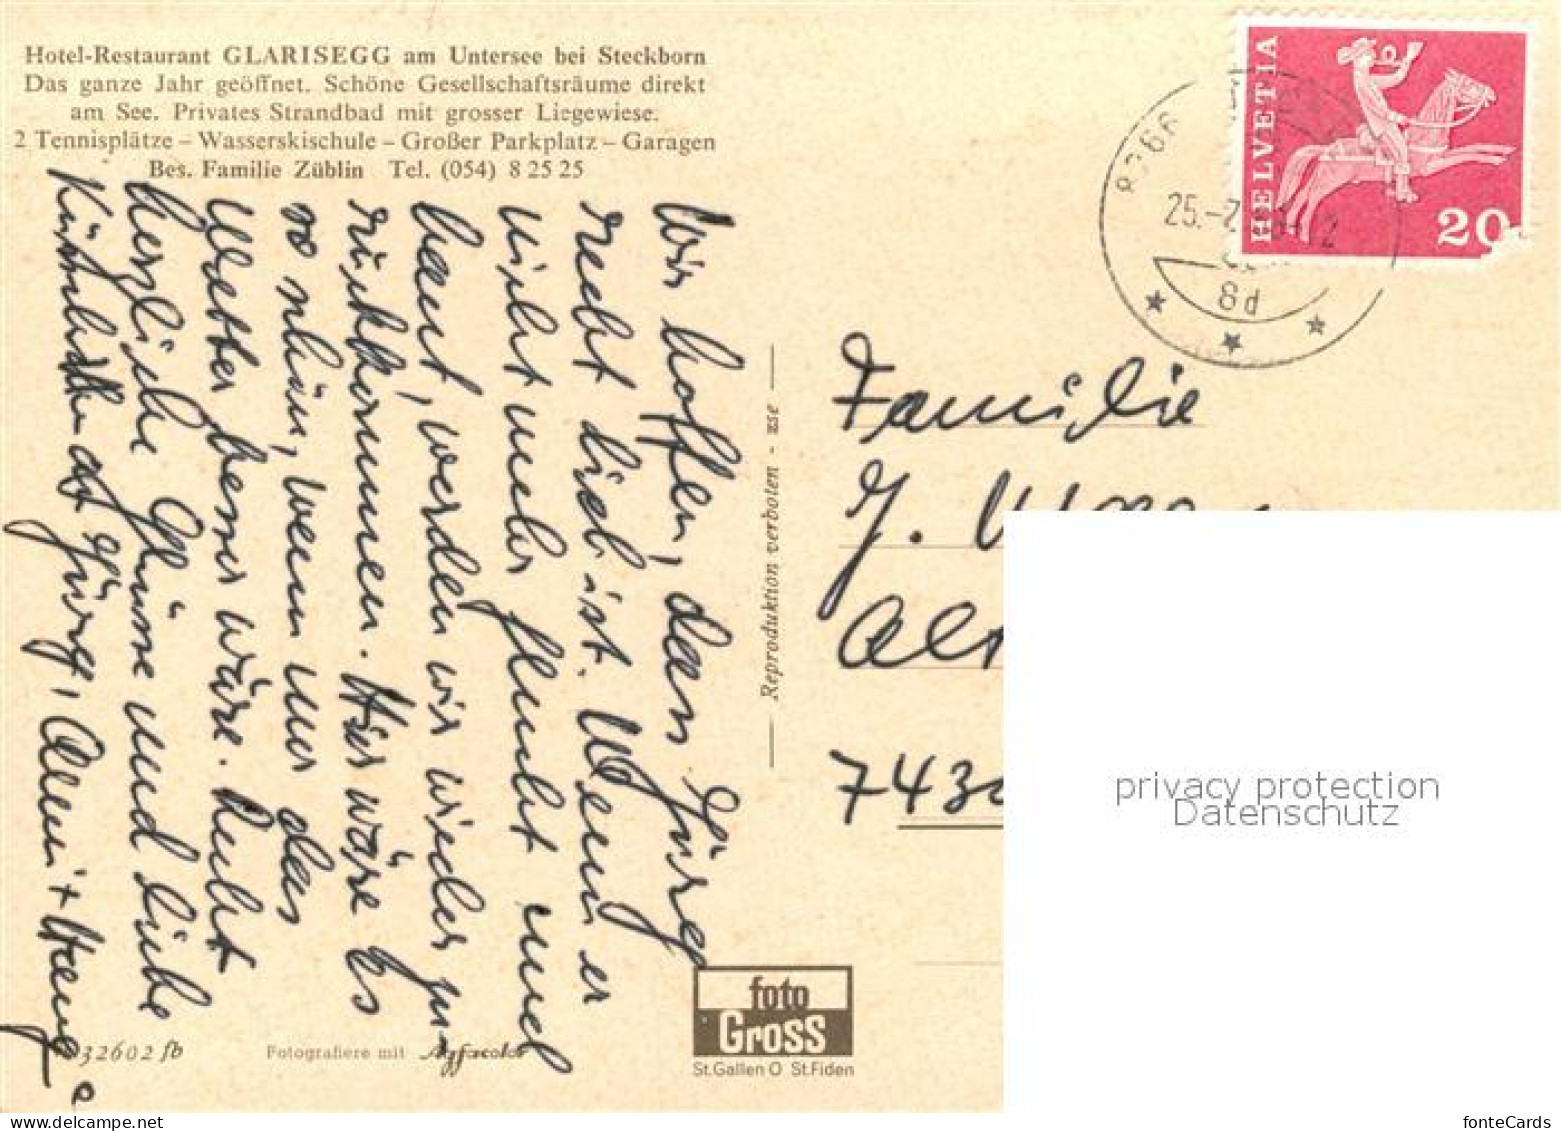 Hotel-Restaurant GLARISEGG am Untersee bei Steckborn
Das ganze Jahr geöffnet. Schöne Gesellschaftsräume direkt
am See. Privates Strandbad mit grosser Liegewiese.
2 Tennisplätze – Wasserskischule – Großer Parkplatz – Garagen
Bes. Familie Züblin Tel. (054) 8 25 25
Wir hoffen, dass Jürg
recht lieb ist. Wenn er
nicht mehr flucht und
haut, werden wir wieder
zurückkommen. Hier wäre es
so schön, wenn nur das
Wetter besser wäre. Recht
herzliche Grüsse und liebe
an Jürg, +
Reproduktion verboten - use
HELVETIA
20
25.-
8d
Familie
J.
7430
32602 sb
Fotografiere mit Agfacolor
foto
Gross
St.Gallen O St.Fiden
privacy protection
Datenschutz
fonteCards